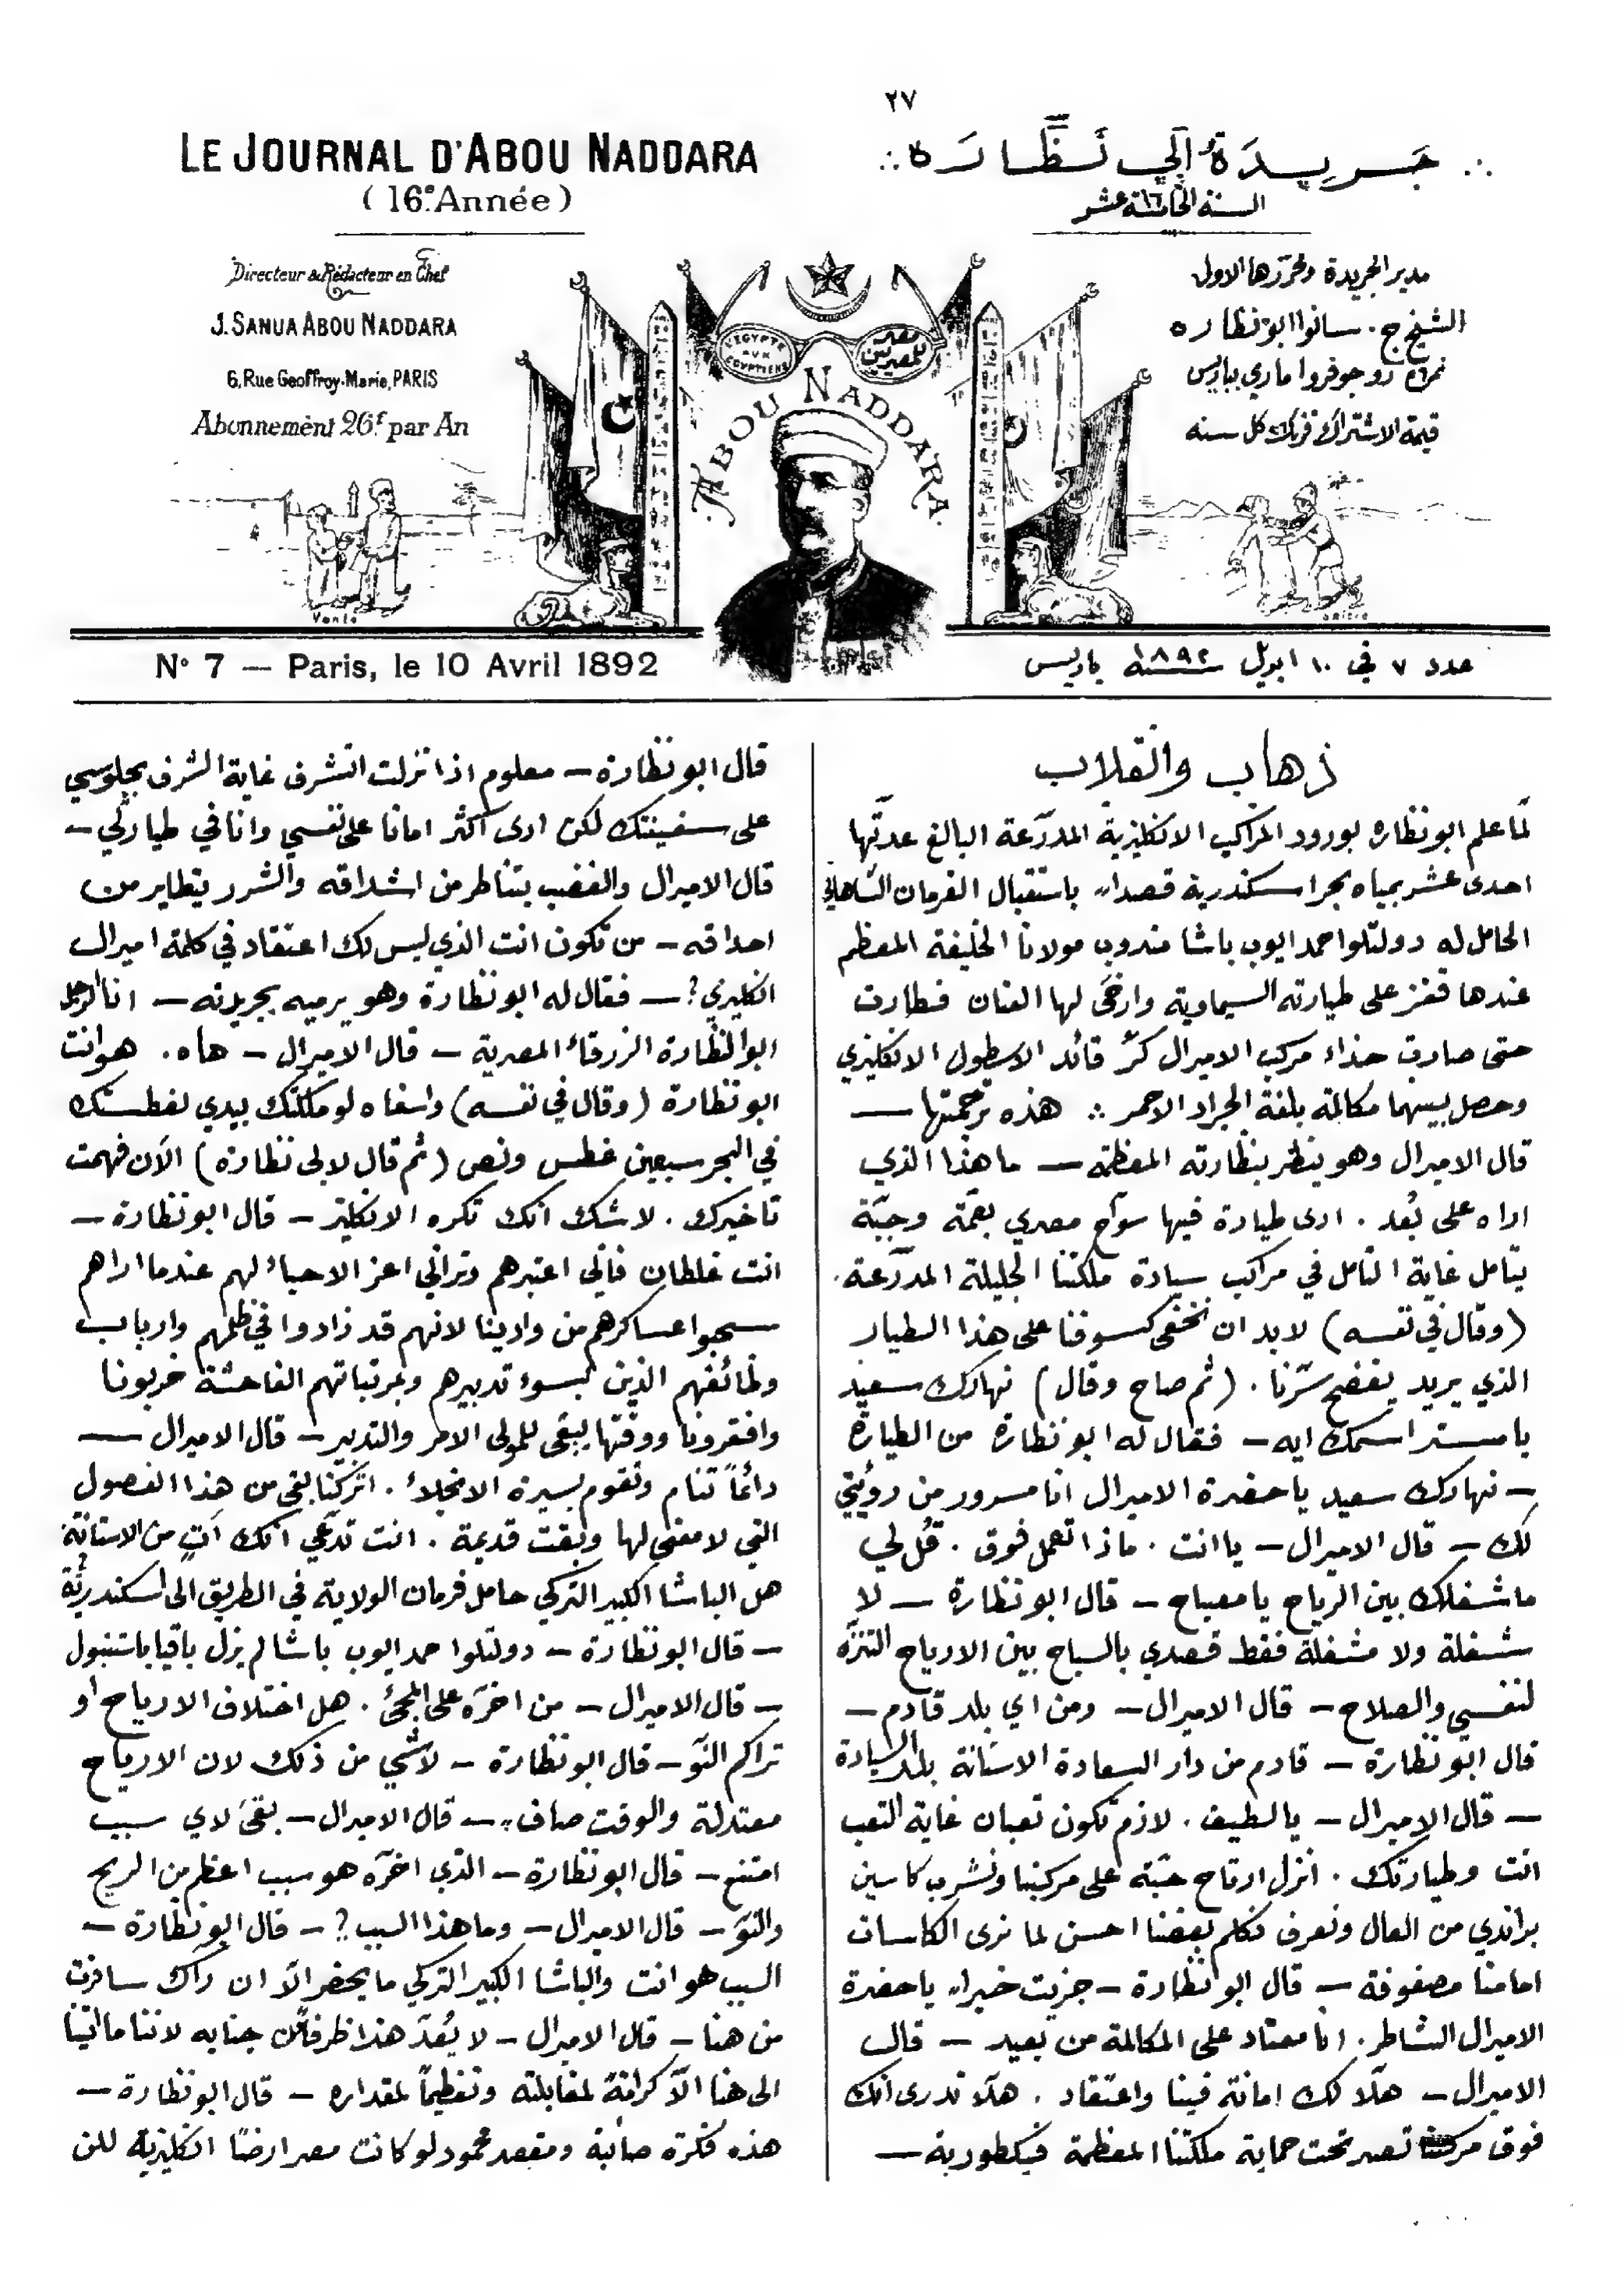 ٢٧
LE JOURNAL D'ABOU NADDARA
(16e Année)
جَريدَة أَبي نَظَّارَه
السنة السادسة عشر
Directeur & Rédacteur en Chef
J. SANUA ABOU NADDARA
6, Rue Geoffroy-Marie, PARIS
Abonnement 26f par An
مدير الجريدة ومحررها الاول
الشيخ ج. سانوا ابو نظاره
نمرة ٦ رو جوفروا ماري بباريس
قيمة الاشتراك فرنك كل سنه
L'EGYPTE AUX EGYPTIENS
مصر للمصريين
ABOU NADDARA
Vanité
N° 7 — Paris, le 10 Avril 1892
عدد ٧ في ١٠ ابريل سنة ١٨٩٢ باريس
ذهاب وانقلاب
لمّا علم ابو نظاره بورود المراكب الانكليزية المدرّعة البالغ عدتها
احدى عشر بمياه بحر اسكندرية قصداً باستقبال الفرمان الشاهاني
الحامل له دولتلو احمد ايوب باشا مندوب مولانا الخليفة المعظم
عندها قفز على طيارته السيماوية وارخى لها العنان فطارت
حتى صارت حذاء مركب الاميرال كرّ قائد الاسطول الانكليزي
وحصل بينهما مكالمة بلغة الجراد الاحمر ∴ هذه ترجمتها —
قال الاميرال وهو ينظر بنظارته المعظمة — ما هذا الذي
اراه على بُعد . ارى طيارة فيها سوّاح مصري بعمّة وجبّة
يتامل غاية التامل في مراكب سيادة ملكتنا الجليلة المدرّعة.
(وقال في نفسه) لابد ان نخفى كسوفنا على هذا الطيار
الذي يريد يفضح سرّنا . (ثم صاح وقال) نهارك سعيد
يا مستر اسمك ايه — فقال له ابو نظارة من الطيارة
— نهارك سعيد يا حضرة الاميرال انا مسرور من روئيتي
لك — قال الاميرال — يا انت . ماذا تعمل فوق . قُل لي
ما شغلك بين الرياح يا مصباح — قال ابو نظارة — لا
شغلة ولا مشغلة فقط قصدي بالسياح بين الارياح التنزّه
لنفسي والصلاح — قال الاميرال — ومن اي بلد قادم —
قال ابو نظارة — قادم من دار السعادة الاستانة بلد السيادة
— قال الاميرال — يا لطيف . لازم تكون تعبان غاية التعب
انت وطيارتك . انزل ارتاح حبّة على مركبنا ونشرب كاسين
براندي من العال ونعرف نكلم بعضنا احسن لما نرى الكاسات
امامنا مصفوفة — قال ابو نظارة — جزيت خيراً يا حضرة
الاميرال الشاطر . انا معتاد على المكالمة من بعيد — قال
الاميرال — هلّا لك امانة فينا واعتقاد . هلّا تدرى انك
فوق مركبنا تصير تحت حماية ملكتنا المعظمة فيكطورية —
قال ابو نظارة — معلوم اذا نزلت اتشرف غاية الشرف بجلوسي
على سفينتك لكن ارى اكثر امانا على نفسي وانا في طيارتي —
قال الاميرال والغضب يتناطر من اشداقه والشرر يتطاير من
احداقه — من تكون انت الذي ليس لك اعتقاد في كلمة اميرال
انكليزي؟ — فقال له ابو نظارة وهو يرميه بجريدته — انا الرجل
ابو النظارة الزرقاء المصرية — قال الاميرال — هاه . هو انت
ابو نظارة (وقال في نفسه) واسفاه لو ملكتك بيدي لغطستك
في البحر سبعين غطس ونص (ثم قال لابي نظارة) الآن فهمت
تاخيرك . لا شك انك تكره الانكليز — قال ابو نظارة —
انت غلطان فاني اعتبرهم وتراني اعز الاحباء لهم عندما اراهم
سحبوا عساكرهم من وادينا لانهم قد زادوا في ظلمهم وارباب
وظائفهم الذين بسوء تدبيرهم وبمرتباتهم الفاحشة خربونا
وافقرونا ووقتها يبقى للمولى الامر والتدبير — قال الاميرال —
دائماً تنام وتقوم بسيرة الانجلاء . اتركنا بقى من هذا الفصول
التي لا معنى لها وبقت قديمة . انت تدّعي انك آتٍ من الاستانة
هل الباشا الكبير التركي حامل فرمان الولاية في الطريق الى اسكندرية؟
— قال ابو نظارة — دولتلو احمد ايوب باشا لم يزل باقيا باستنبول
— قال الاميرال — من اخره على المجئ . هل اختلاف الارياح او
تراكم النوّ — قال ابو نظارة — لا شي من ذلك لان الارياح
معتدلة والوقت صاف — قال الاميرال — بقى لاي سبب
امتنع — قال ابو نظارة — الذي اخره هو سبب اعظم من الريح
والنوّ — قال الاميرال — وما هذا السبب؟ — قال ابو نظارة —
السبب هو انت والباشا الكبير التركي ما يحضر الّا ان رآك سافرت
من هنا — قال الاميرال — لا يُعدّ هذا ظرفاً من جنابه لاننا ما اتينا
الى هنا الّا كرامةً لمقابلته وتعظيماً لمقداره — قال ابو نظارة —
هذه فكرة صائبة ومقصد محمود لو كانت مصر ارضاً انكليزية لكن